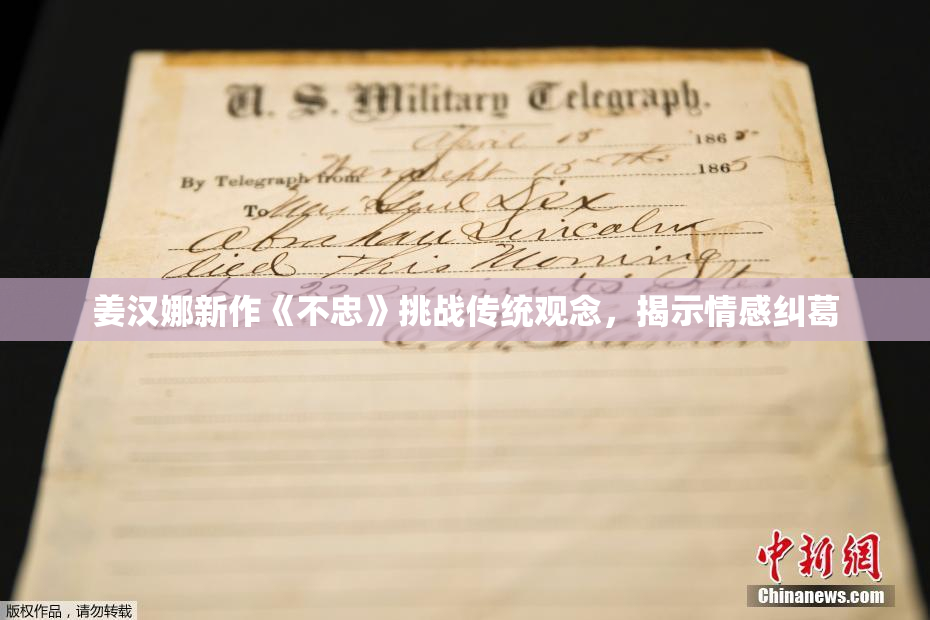 U. S. Military Telegraph.
April 15 1865
By Telegraph from War Dept 15th 1865
To Maj Genl Dix
Abraham Lincoln
died This Morning
22 minutes after
姜汉娜新作《不忠》挑战传统观念，揭示情感纠葛
E. M. Stanton
中新网
Chinanews.com
版权作品，请勿转载